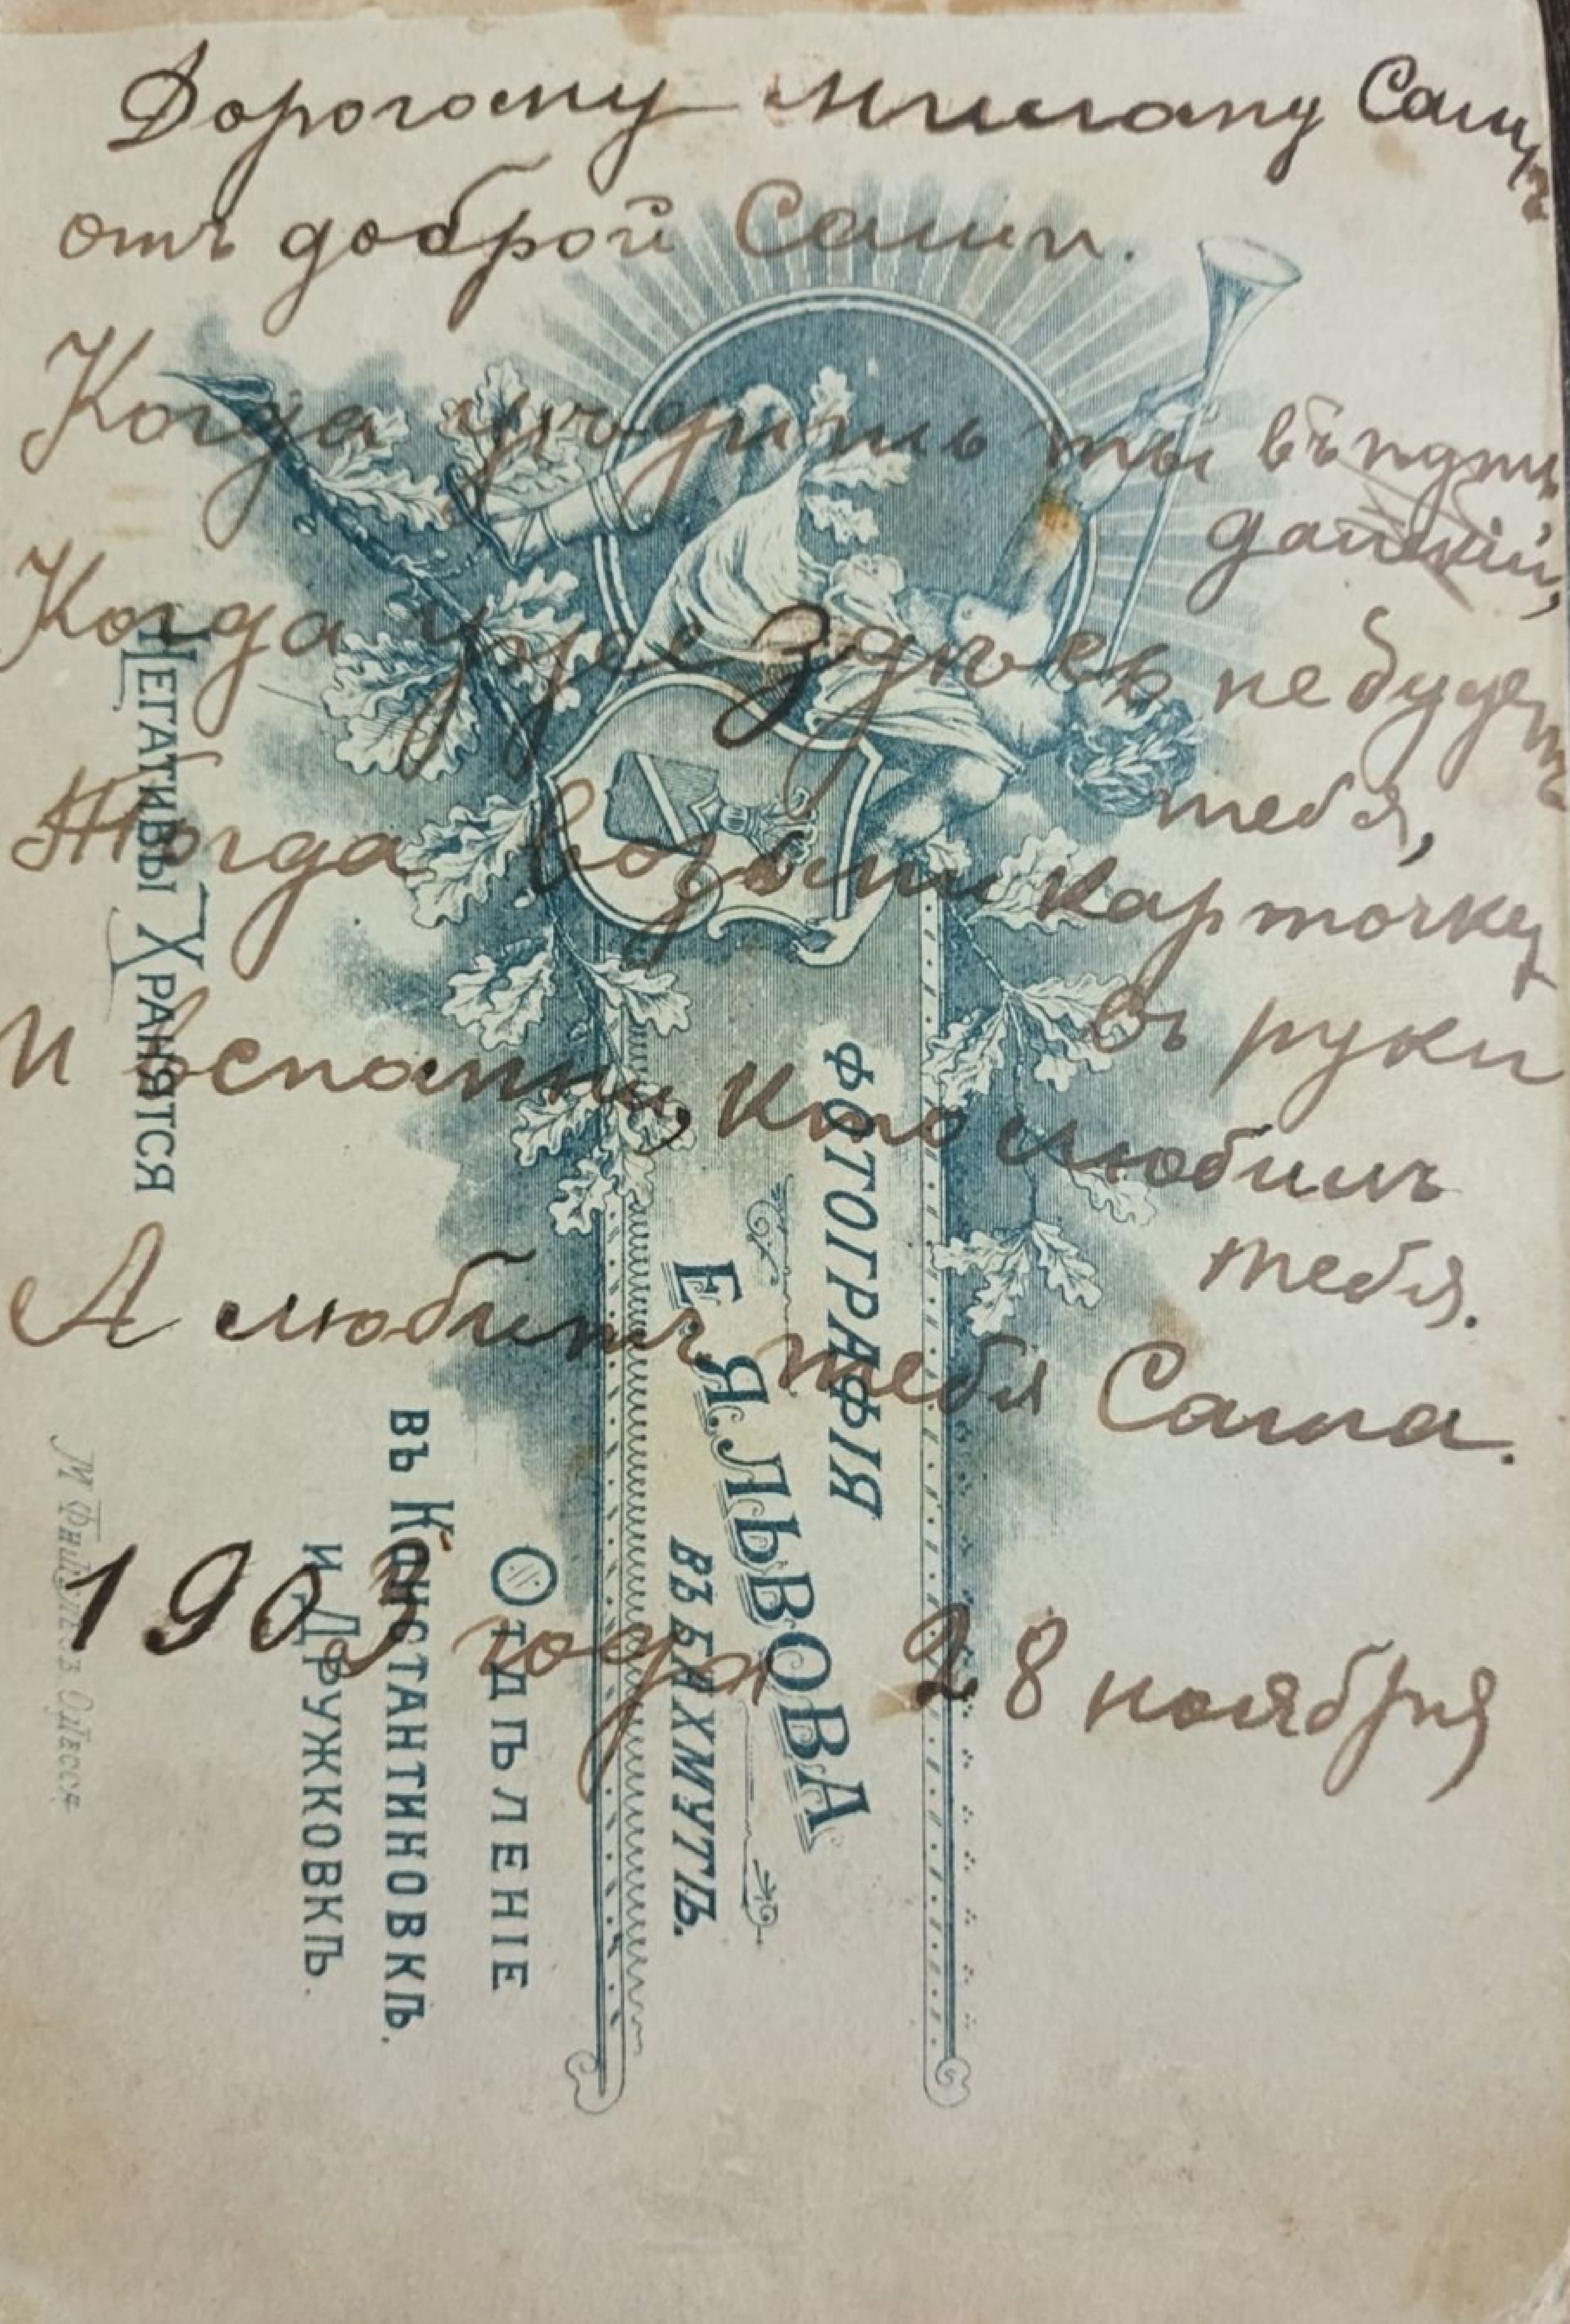 Дорогому милому Сашѣ
отъ доброй Саши.
Когда уѣдишь ты въ путь
далькій,
Когда уже здѣсь не будетъ
тебя,
Тогда возьми карточку
въ руки
И вспомни, кто любитъ
тебя.
А любитъ тебя Саша.
1903 года 28 ноября
ФОТОГРАФІЯ
Е. ЯЛЬВОВА
ВЪ БАХМУТѢ.
ОТДѢЛЕНІЕ
ВЪ КОНСТАНТИНОВКѢ
И ДРУЖКОВКѢ.
НЕГАТИВЫ ХРАНЯТСЯ
Одесса